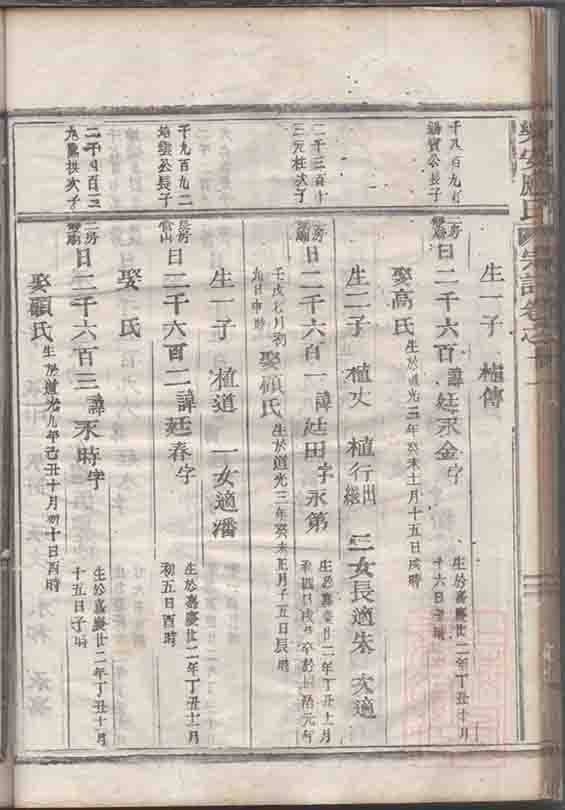 樂安應氏宗譜卷之十
千九百九
錫寶公長子
二千三百十
三元柱次子
千九百九二
培雲公長子
二千四百三
九霽拱次子
生一子 植傳
二房日二千六百 諱廷永金字
生於嘉慶廿二年丁丑十月
十六日子時
娶高氏 生於道光三年癸未十月十五日戌時
生二子 植火 植行出繼 二女長適朱 次適
二房日二千六百一 諱廷田字永第
壬戌七月初
九日申時
娶顧氏 生於道光三年癸未正月十五日辰時
生一子 植道 一女適潘
長房日二千六百二 諱廷春字
生於嘉慶廿二年丁丑十月
初五日酉時
娶 氏
二房日二千六百三 諱永時字
生於嘉慶廿二年丁丑十月
十五日子時
娶顧氏 生於道光九年己丑十月初十日酉時